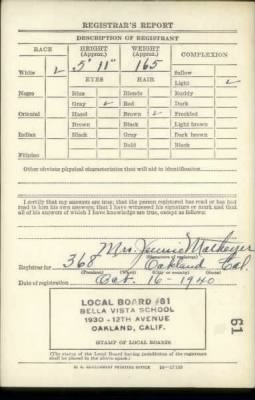 REGISTRAR'S REPORT
DESCRIPTION OF REGISTRANT
RACE HEIGHT (Approx.) WEIGHT (Approx.) COMPLEXION
White ✓ 5' 11" 165 Sallow
Light ✓
EYES HAIR
Negro Blue Blonde Ruddy
Gray ✓ Red Dark
Oriental Hazel Brown ✓ Freckled
Brown Black Light brown
Indian Black Gray Dark brown
Bald Black
Filipino
Other obvious physical characteristics that will aid in identification
I certify that my answers are true; that the person registered has read or has
had read to him his own answers; that I have witnessed his signature or mark and that
all of his answers of which I have knowledge are true, except as follows:
Mrs. Jennie
(Signature of registrar)
Registrar for 368 Oakland Cal.
(Precinct) (Ward) (City or county) (State)
Date of registration Oct. 16 - 1940
LOCAL BOARD #61
BELLA VISTA SCHOOL
1930 - 12TH AVENUE
OAKLAND, CALIF.
61
STAMP OF LOCAL BOARD
(The stamp of the Local Board having jurisdiction of the registrant
shall be placed in the above space.)
U. S. GOVERNMENT PRINTING OFFICE